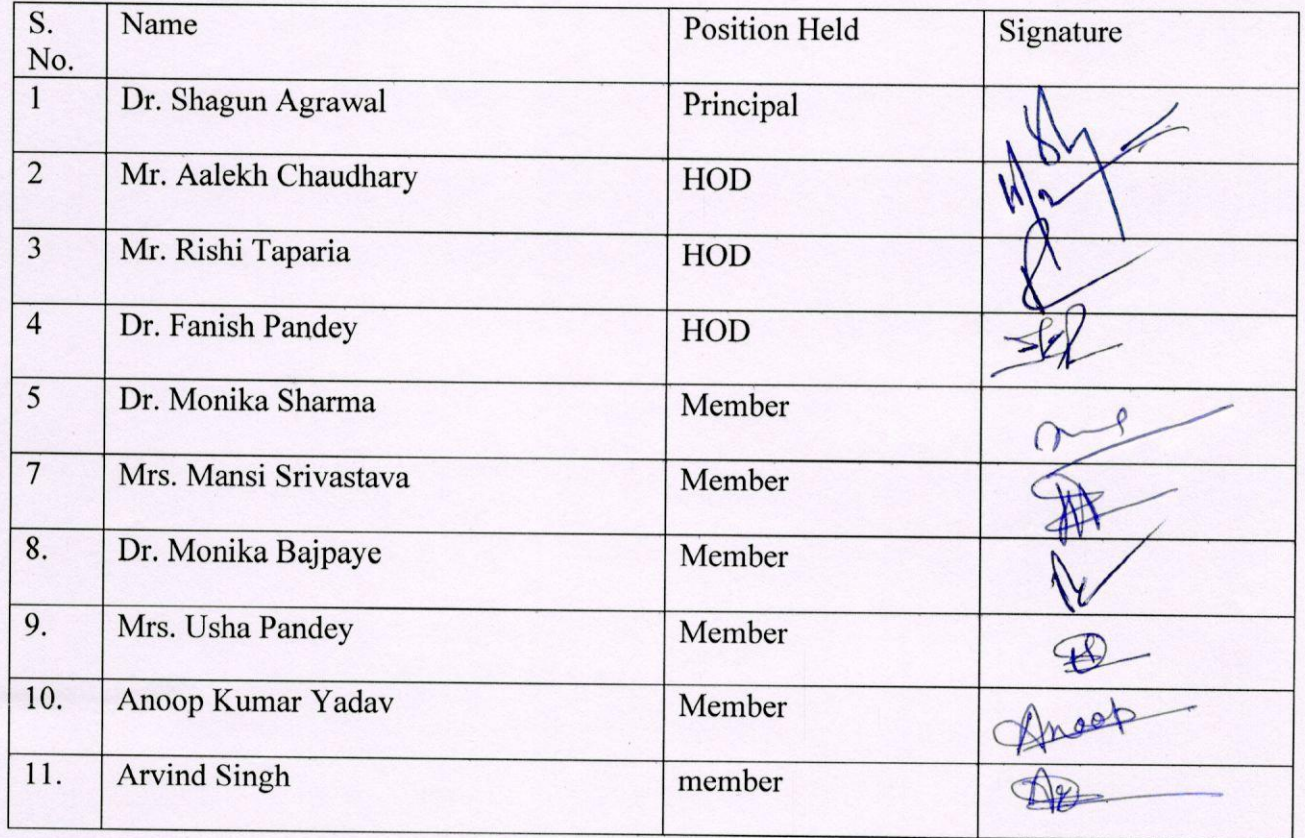 S. No. Name Position Held Signature
1 Dr. Shagun Agrawal Principal
2 Mr. Aalekh Chaudhary HOD
3 Mr. Rishi Taparia HOD
4 Dr. Fanish Pandey HOD
5 Dr. Monika Sharma Member
7 Mrs. Mansi Srivastava Member
8. Dr. Monika Bajpaye Member
9. Mrs. Usha Pandey Member
10. Anoop Kumar Yadav Member Anoop
11. Arvind Singh member